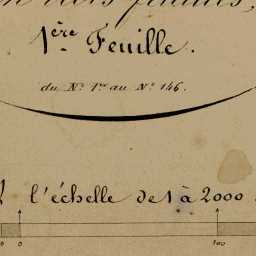 1ère Feuille.
du No. 1er au No. 146.
l'échelle de 1 à 2000
0 0 100